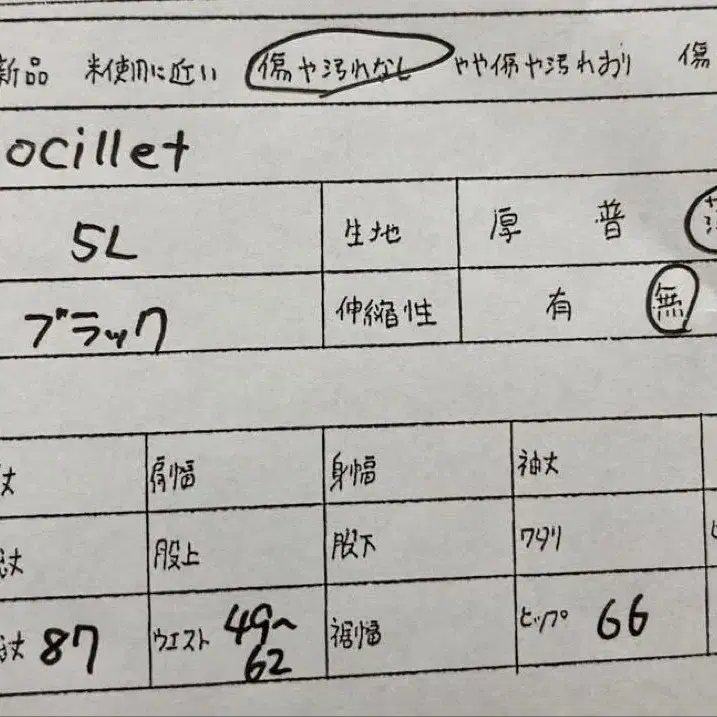 新品 未使用に近い 傷や汚れなし やや傷や汚れあり 傷
ocillet
5L 生地 厚 普
ブラック 伸縮性 有 無
丈 肩幅 身幅 袖丈
丈 股上 股下 ワタリ
丈 87 ウエスト 49〜62 裾幅 ヒップ 66